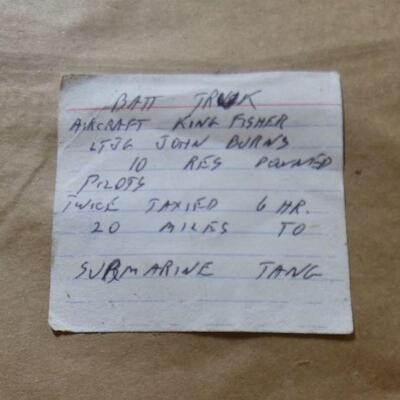 BATT TRUK
AIRCRAFT KING FISHER
LTJG JOHN BURNS
10 RES DOWNED
PILOTS
TWICE TAXIED 6 HR.
20 MILES TO
SUBMARINE TANG